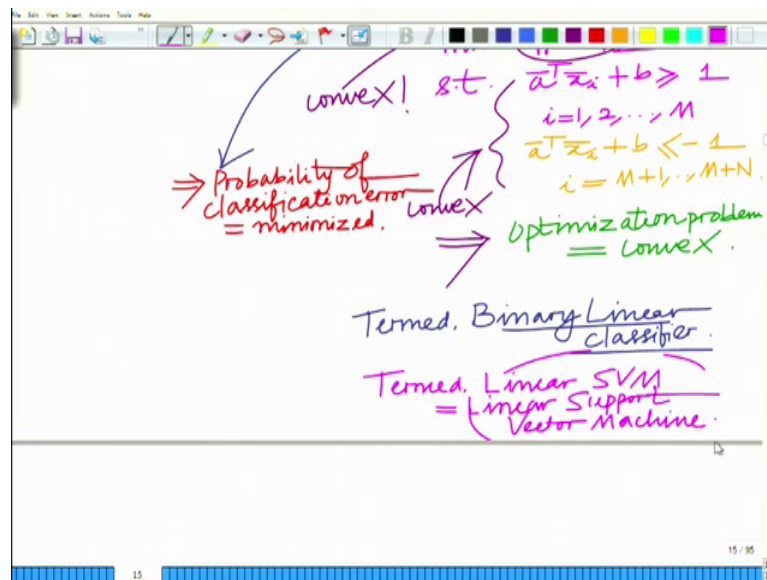 File Edit View Insert Actions Tools Help
B I
convex!
s.t. a̅ᵀx̅ᵢ + b ≥ 1
i=1, 2, ..., M
a̅ᵀx̅ᵢ + b ≤ -1
i = M+1, .., M+N.
convex
⇒ Probability of
classification error
= minimized.
⇒ Optimization problem
= convex.
Termed. Binary Linear
Classifier.
Termed. Linear SVM
= Linear Support
Vector Machine.
15 / 95
15